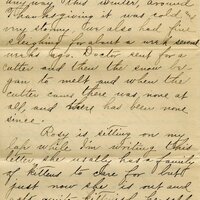 anyway this winter, around
Thanksgiving it was cold &
very stormy. Our also had fine
sleighing for about a week several
weeks ago. Doctor sent for a
cutter and then the snow be-
gan to melt and when the
cutter came there was, none at
all, and there has been none
since.
Roxy is, sitting on my
lap while I'm writing this
letter she usally has a family
of kittens to care for but
just now she is out and